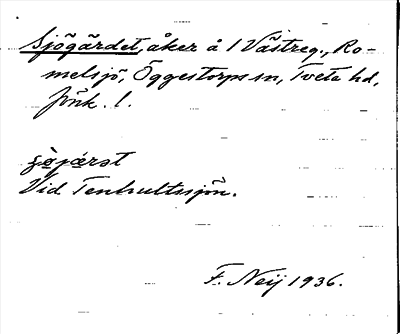 Sjögärdet, åker å 1 Västreg., Ro-
melsjö, Öggestorps sn, Tveta hd,
Jönk. l.
Vid Tenhultssjön.
F. Neij 1936.